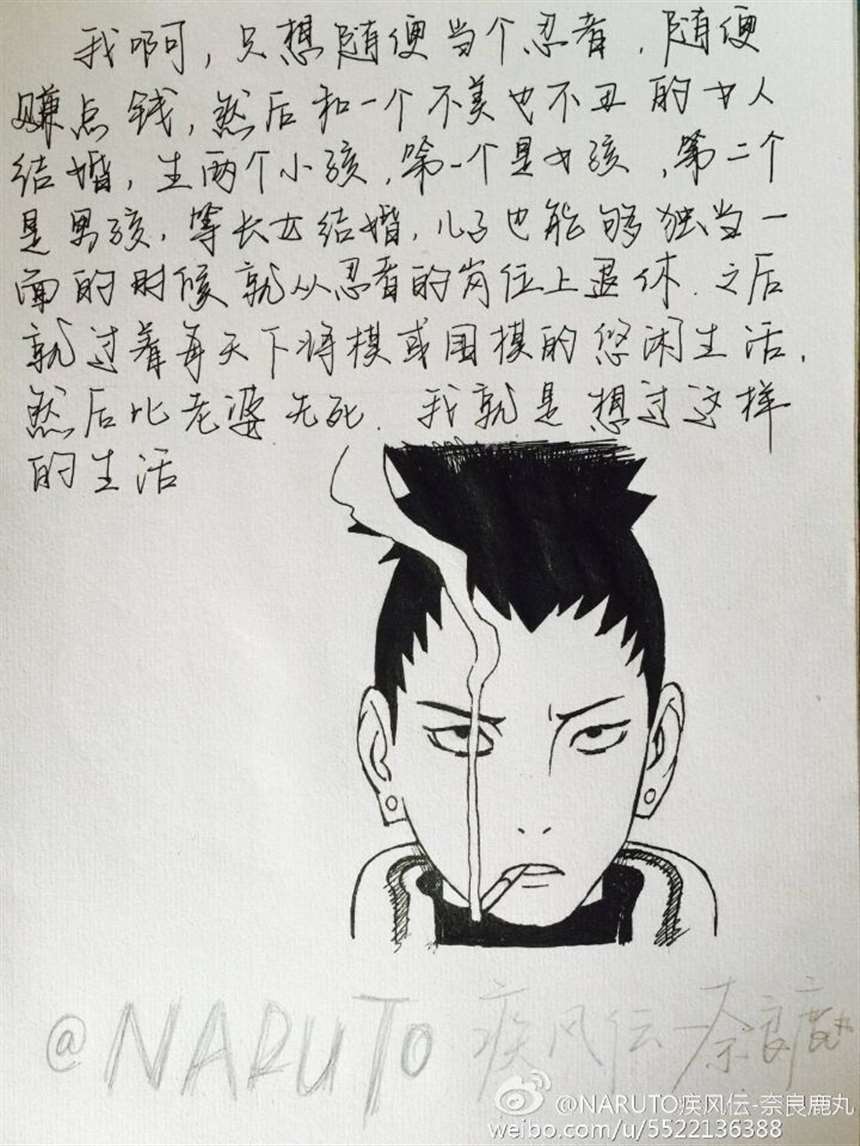 我啊，只想随便当个忍者，随便
赚点钱，然后和一个不美也不丑的女人
结婚，生两个小孩，第一个是女孩，第二个
是男孩，等长女结婚，儿子也能够独当一
面的时候就从忍者的岗位上退休．之后
就过着每天下将棋或围棋的悠闲生活，
然后比老婆先死．我就是想过这样
的生活
@NARUTO疾风传-奈良鹿丸
@NARUTO疾风传-奈良鹿丸
weibo.com/u/5522136388